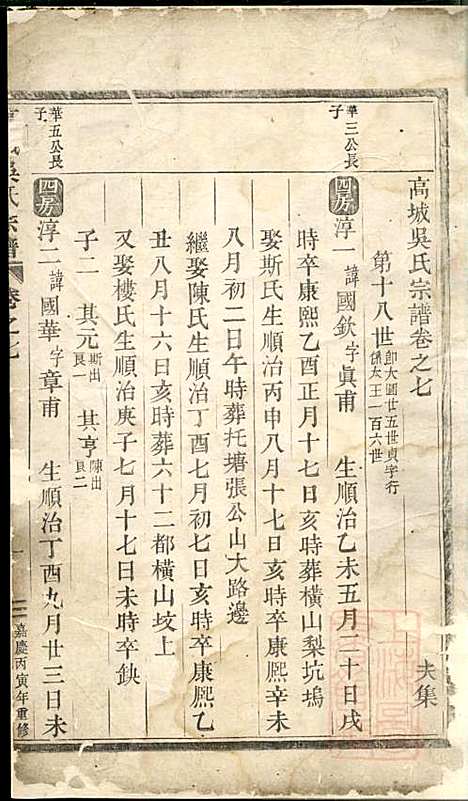 高城吳氏宗譜卷之七
夫集
第十八世
即大圖廿五世貞字行
係太王一百六世
華三公長子
四房淳一諱國欽字眞甫 生順治乙未五月二十日戌
時卒康熙乙酉正月十七日亥時葬橫山梨坑塢
娶斯氏生順治丙申八月十七日亥時卒康熙辛未
八月初二日午時葬托塘張公山大路邊
繼娶陳氏生順治丁酉七月初七日亥時卒康熙乙
丑八月十六日亥時葬六十二都橫山坟上
又娶樓氏生順治庚子七月十七日未時卒鈌
子二 其元斯出艮一 其亨陳出艮二
華五公長子
四房淳二諱國華字章甫 生順治丁酉九月廿三日未
吳氏宗譜 卷之七 一
嘉慶丙寅年重修